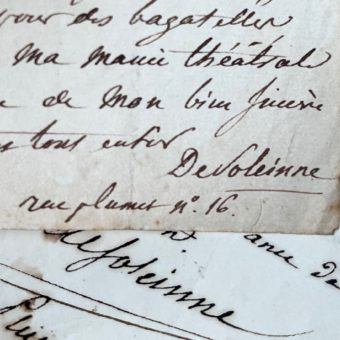 pour des bagatelles
ma manie théâtrale
de mon bien sincère
tout entier
De Soleinne
rue plumet n°. 16.
De Soleinne